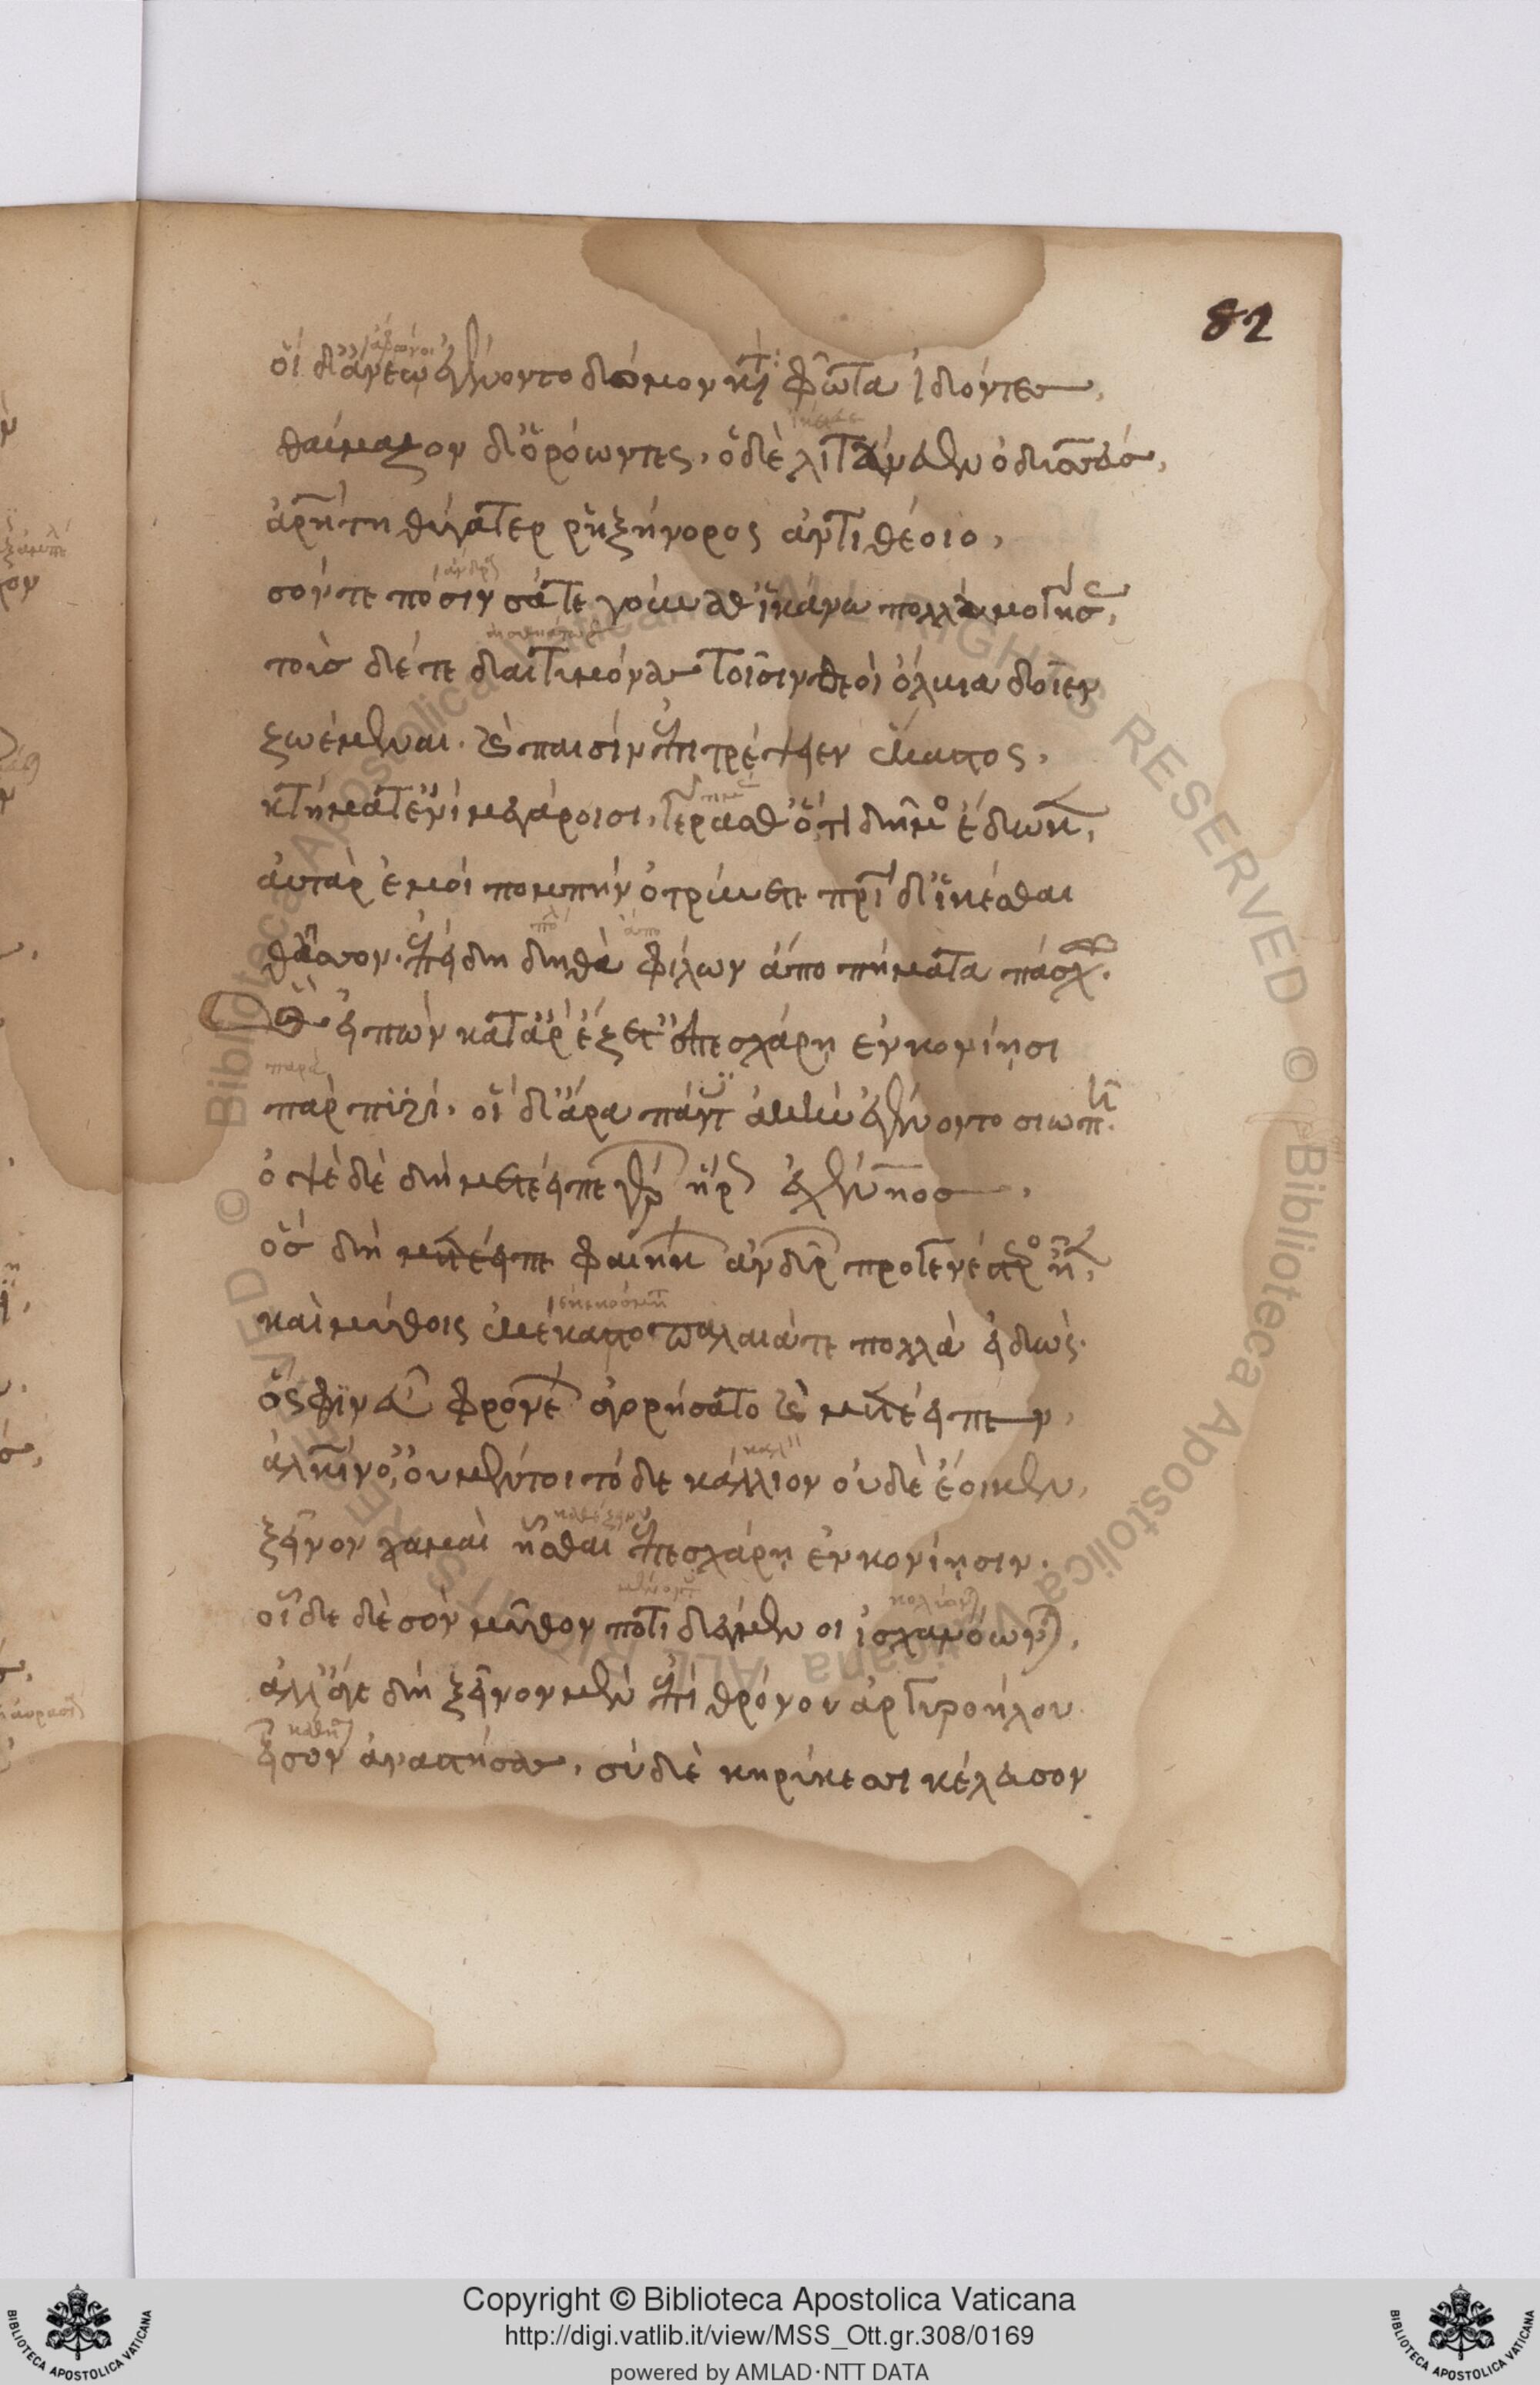 82
οἱ δ' ἄνεῳ ἐγένοντο δόμον κάτα φῶτα ἰδόντες,
θαύμαζον δ' ὁρόωντες, ὁ δὲ λιτάνευεν ὀδυσσεύς,
ἀρήτη θύγατερ ῥηξήνορος ἀντιθέοιο,
σόν τε πόσιν σά τε γούναθ' ἱκάνω πολλὰ μογήσας,
τούσδέ τε δαιτυμόνας τοῖσιν θεοὶ ὄλβια δοῖεν
ζωέμεναι. καὶ παισὶν ἐπιτρέψειεν ἕκαστος,
κτήματ' ἐνὶ μεγάροισι, γέρας θ' ὅ,τι δῆμος ἔδωκεν,
αὐτὰρ ἐμοὶ πομπὴν ὀτρύνετε πατρίδ' ἱκέσθαι
θᾶσσον. ἐπειδὴ δηθὰ φίλων ἄπο πήματα πάσχω.
ὣς εἰπὼν κατ' ἄρ' ἕζετ' ἐπ' ἐσχάρῃ ἐν κονίῃσι
παρὰ
πὰρ πυρί. οἱ δ' ἄρα πάντες ἀκὴν ἐγένοντο σιωπῇ.
ὀψὲ δὲ δὴ μετέειπε γέρων ἥρως ἐχένηος,
ὃς δὴ μετέειπε φαιήκων ἀνδρῶν προγενέστερος ἦεν,
καὶ μύθοις ἐκέκαστο παλαιά τε πολλά εἰδώς.
ὅ σφιν ἐϋφρονέων ἀγορήσατο καὶ μετέειπεν,
ἀλκίνο', οὐ μέν τοι τόδε κάλλιον οὐδὲ ἔοικεν,
ξεῖνον χαμαὶ ἧσθαι ἐπ' ἐσχάρῃ ἐν κονίῃσιν.
οἵδε δὲ σὸν μῦθον ποτιδέγμενοι ἰσχανόωνται,
ἀλλ' ἄγε δὴ ξεῖνον μὲν ἐπὶ θρόνου ἀργυροήλου
εἷσον ἀναστήσας, σὺ δὲ κηρύκεσσι κέλευσον
Copyright © Biblioteca Apostolica Vaticana
http://digi.vatlib.it/view/MSS_Ott.gr.308/0169
powered by AMLAD·NTT DATA